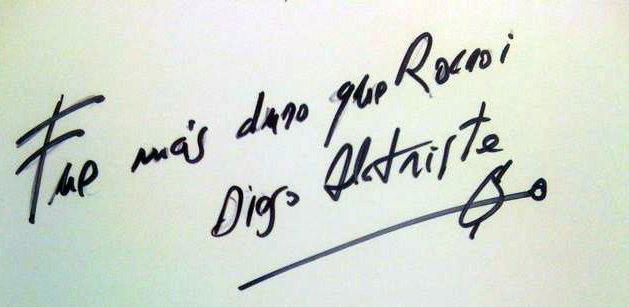 Fue más duro que Rocroi
Diego Alatriste